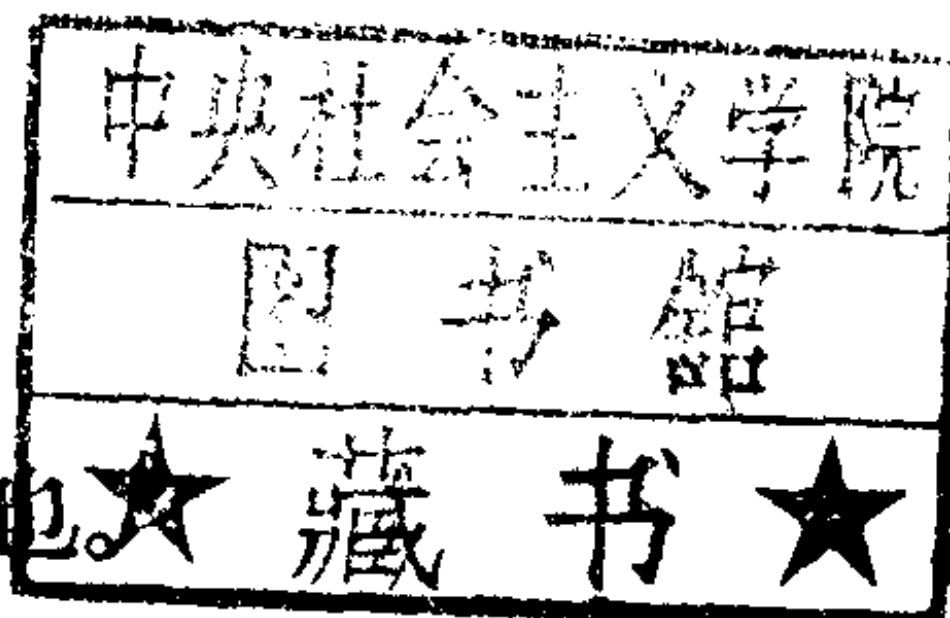 中央社会主义学院
图书館
也。★藏书★